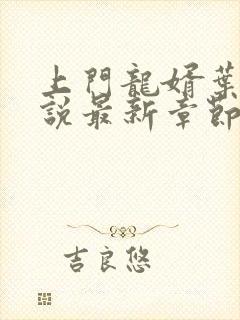 上門龍婿葉
説最新章節
吉良悠